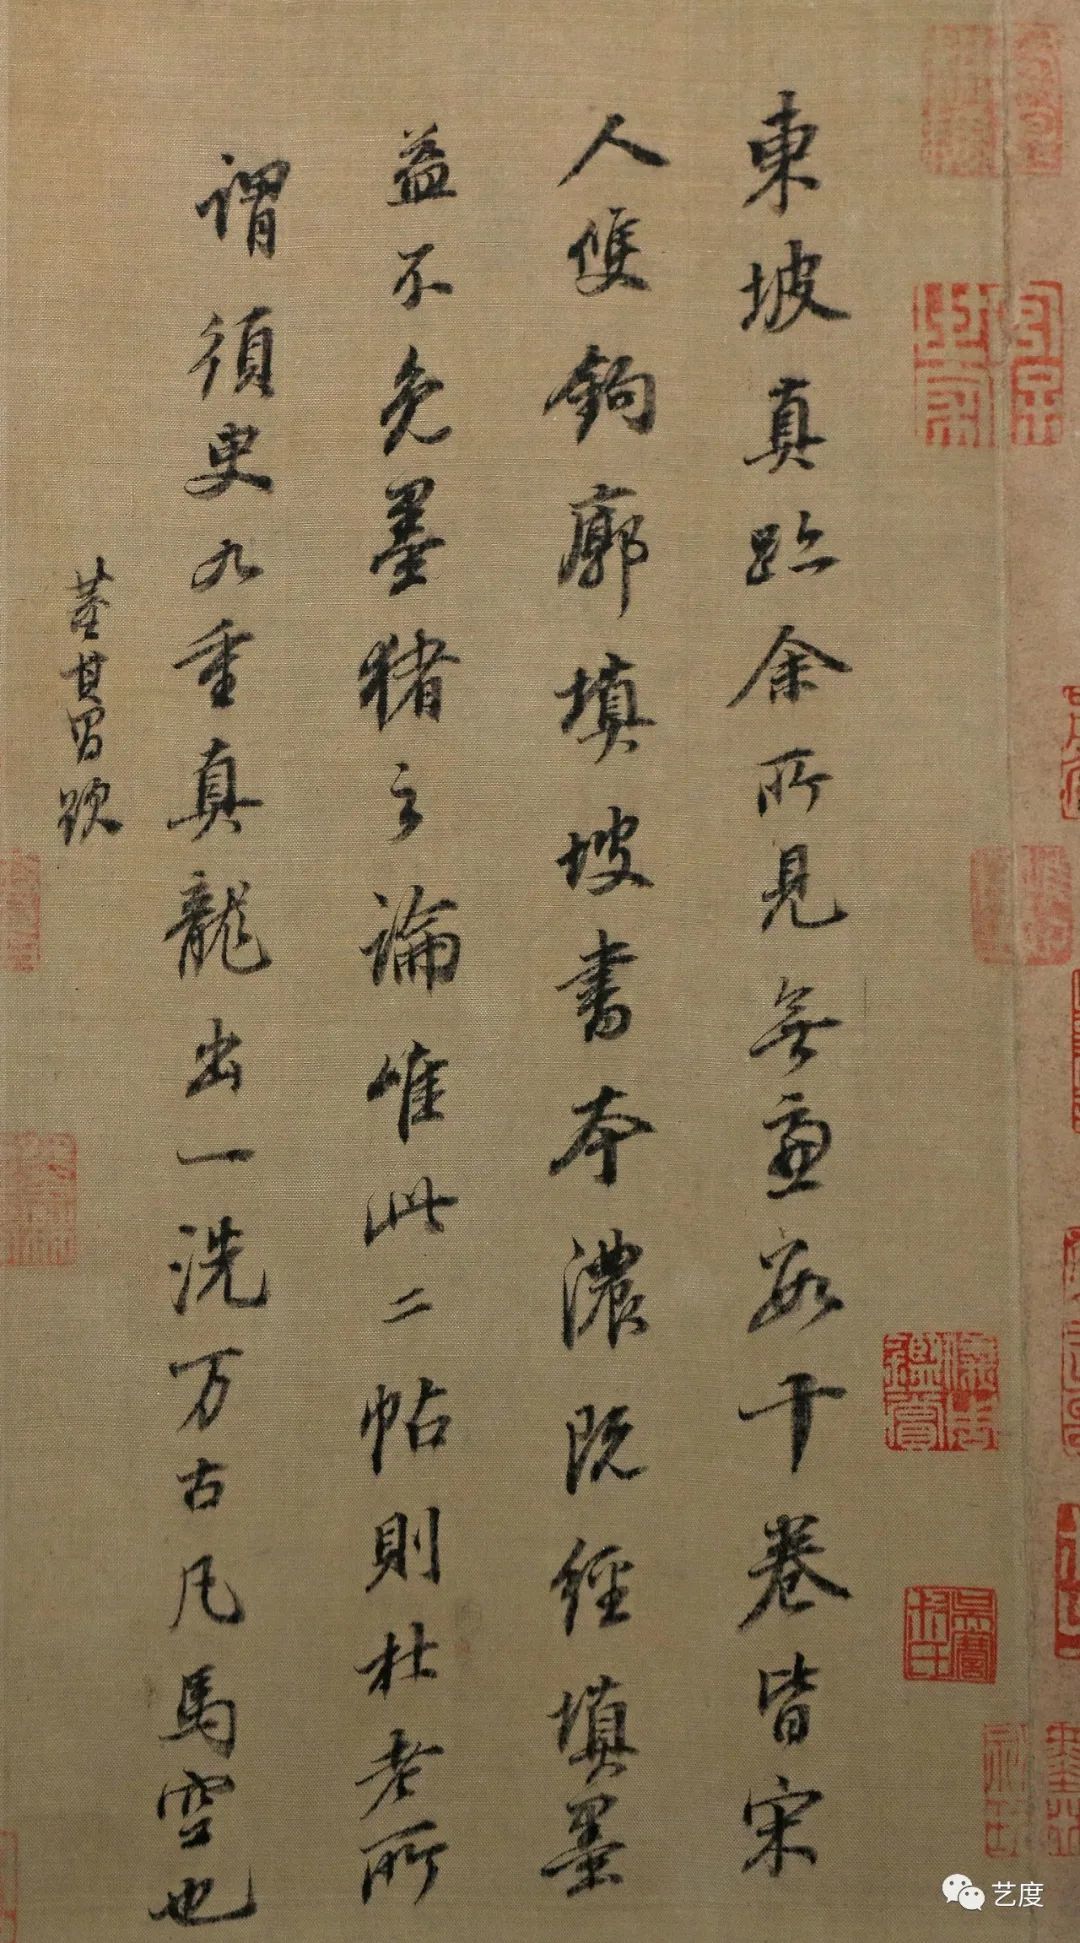 東坡真跡余所見無慮數十卷皆宋
人雙鉤廓填坡書本濃既經填墨
益不免墨豬之論唯此二帖則杜老所
謂須臾九重真龍出一洗万古凡馬空也
董其昌題
儀周鑑賞
艺度